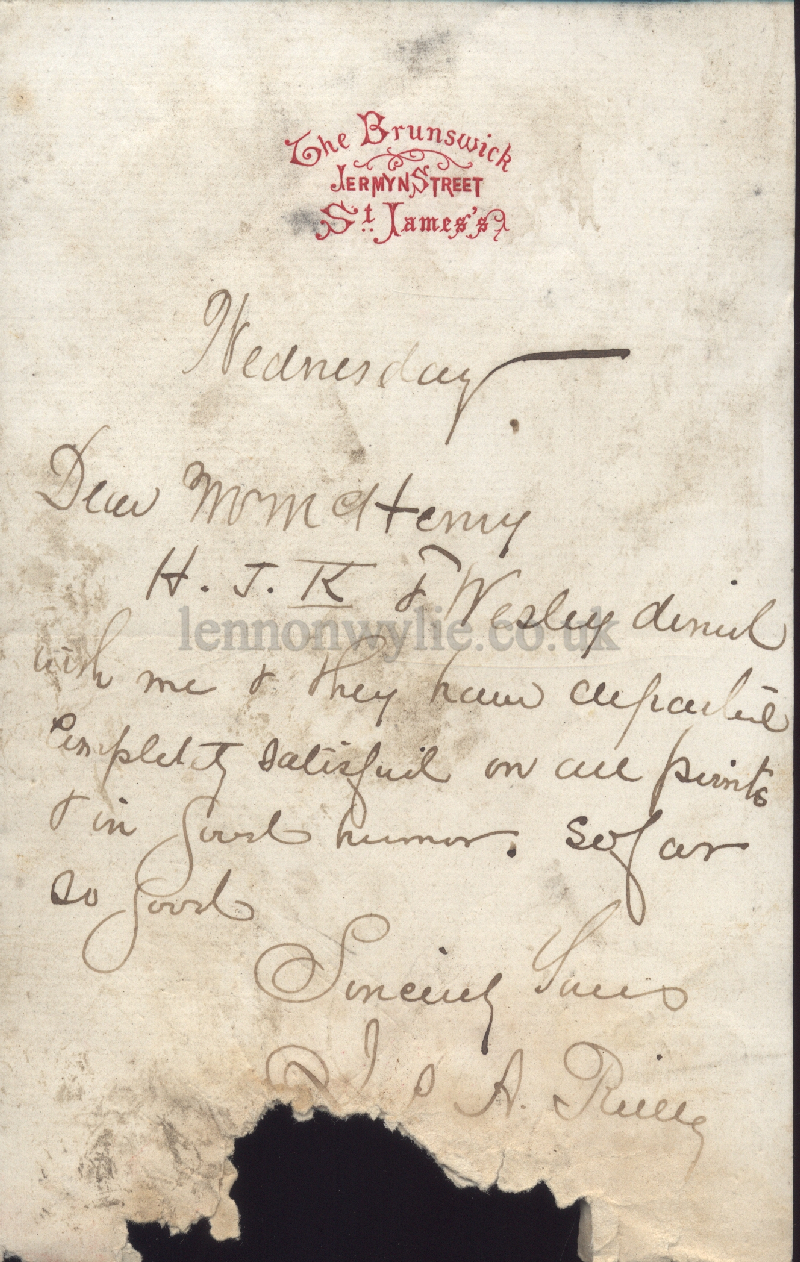 The Brunswick
Jermyn Street
St. James's
Wednesday
Dear Mr McHenry
H. J. K & Wesley dined
with me & they have departed
Completely satisfied on all points
& in good humor. So far
so good
Sincerely Yours
A. Reilly
lennonwylie.co.uk